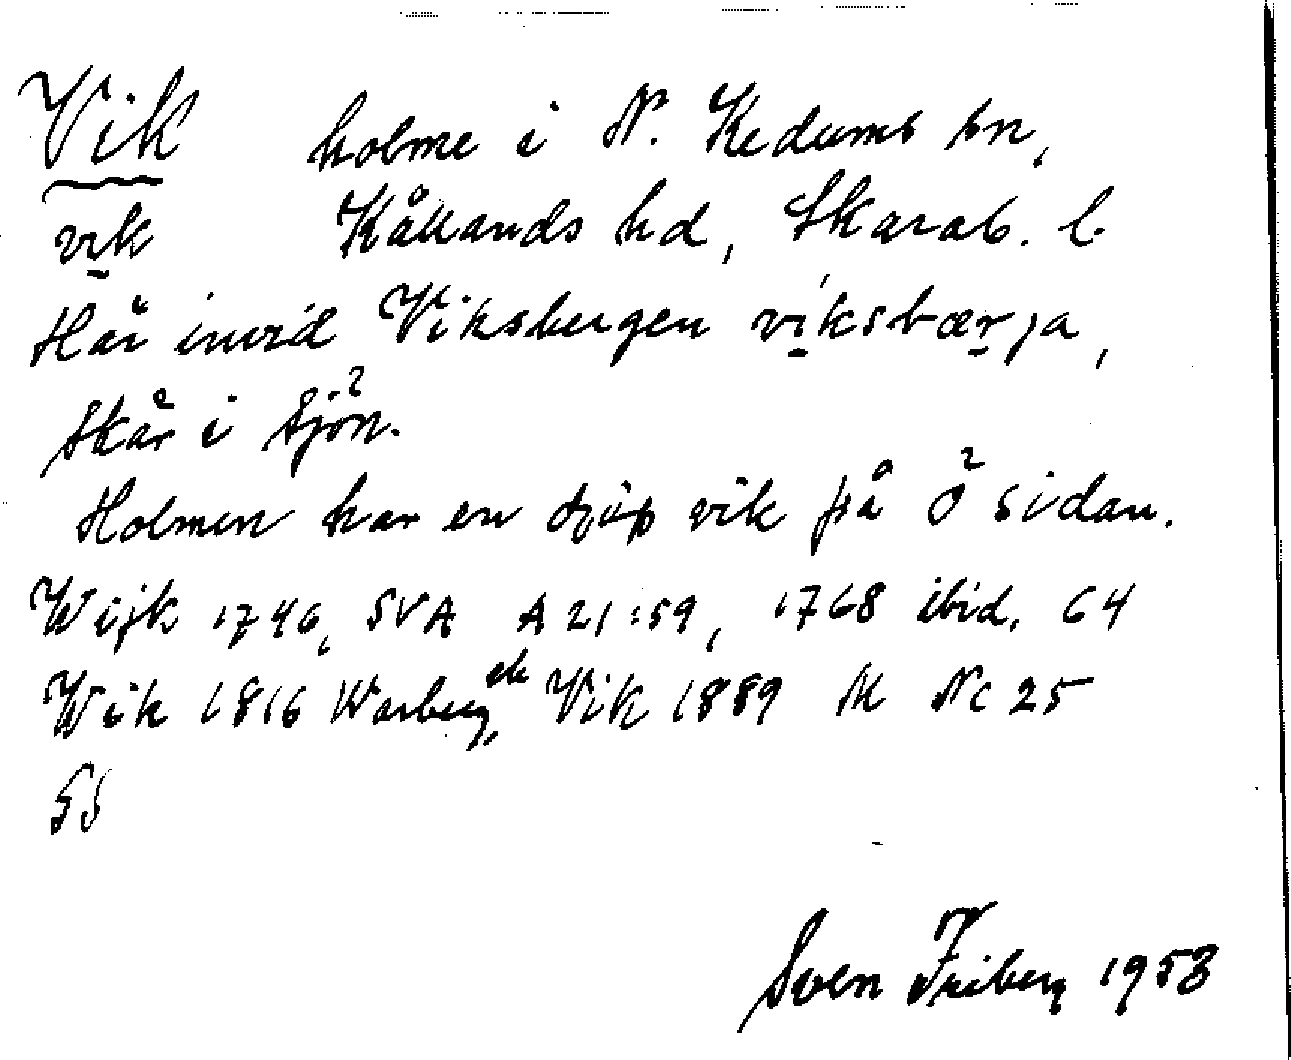 Vik holme i N. Kedums sn,
vik Kållands hd, Skarab. l.
Här invid Viksbergen viksbærja,
skär i sjön.
Holmen har en djup vik på ö sidan.
Wijk 1746, SVA A 21:59, 1768 ibid. 64
Wik 1816 Warberg, ek Vik 1889 M Nc 25
SS
Sven Friberg 1953